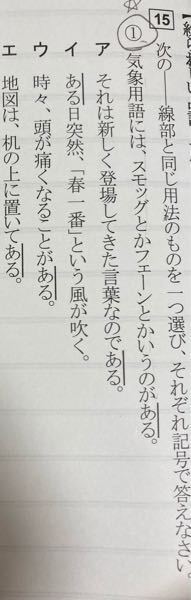 15
次の――線部と同じ用法のものを一つ選び、それぞれ記号で答えなさい。
① 気象用語には、スモッグとかフェーンとかいうのがある。
ア それは新しく登場してきた言葉なのである。
イ ある日突然、「春一番」という風が吹く。
ウ 時々、頭が痛くなることがある。
エ 地図は、机の上に置いてある。